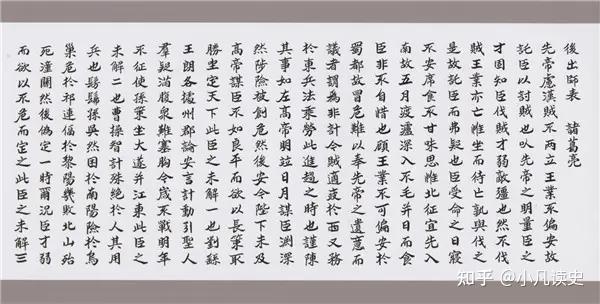 後出師表 諸葛亮
先帝慮漢賊不兩立王業不偏安故
託臣以討賊也以先帝之明量臣之
才固知臣伐賊才弱敵彊也然不伐
賊王業亦亡惟坐而待亡孰與伐之
是故託臣而弗疑也臣受命之日寢
不安席食不甘味思惟北征宜先入
南故五月渡瀘深入不毛并日而食
臣非不自惜也顧王業不可偏安於
蜀都故冒危難以奉先帝之遺意而
議者謂為非計今賊適疲於西又務
於東兵法乘勞此進趨之時也謹陳
其事如左高帝明竝日月謀臣淵深
然涉險被創危然後安今陛下未及
高帝謀臣不如良平而欲以長策取
勝坐定天下此臣之未解一也劉繇
王朗各據州郡論安言計動引聖人
羣疑滿腹衆難塞胸今歲不戰明年
不征使孫策坐大遂并江東此臣之
未解二也曹操智計殊絕於人其用
兵也髣髴孫吳然困於南陽險於烏
巢危於祁連偪於黎陽幾敗北山殆
死潼關然後偽定一時爾況臣才弱
而欲以不危而定之此臣之未解三
知乎 @小凡读史